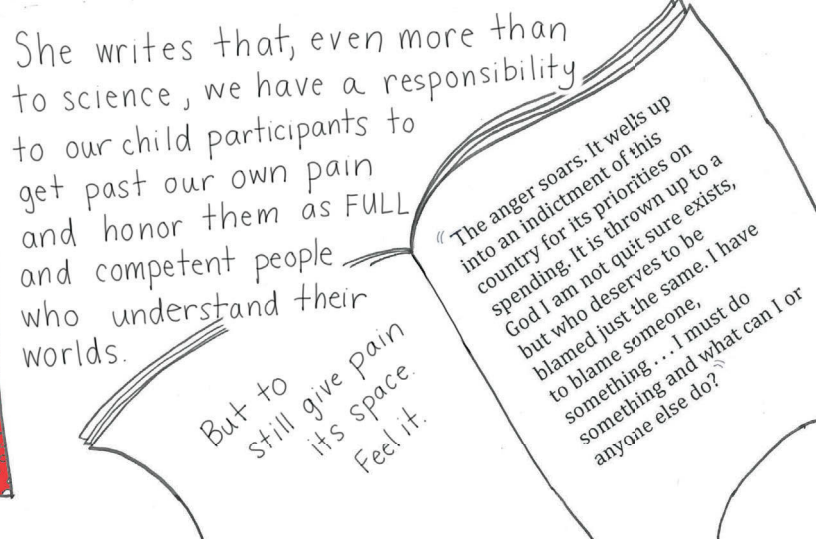 She writes that, even more than
to science, we have a responsibility
to our child participants to
get past our own pain
and honor them as FULL
and competent people
who understand their
worlds.
But to
still give pain
its space.
Feel it.
"The anger soars. It wells up
into an indictment of this
country for its priorities on
spending. It is thrown up to a
God I am not quit sure exists,
but who deserves to be
blamed just the same. I have
to blame someone,
something . . . I must do
something and what can I or
anyone else do?"